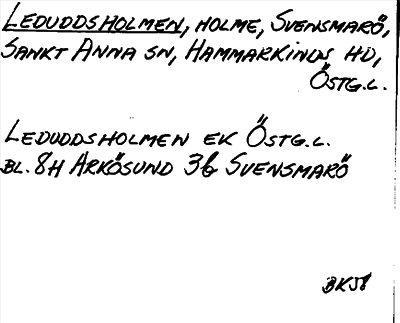 LEDUDDSHOLMEN, HOLME, SVENSMARÖ,
SANKT ANNA SN, HAMMARKINDS HD,
ÖSTG.L.
LEDUDDSHOLMEN EK ÖSTG.L.
BL. 8H ARKÖSUND 3b SVENSMARÖ